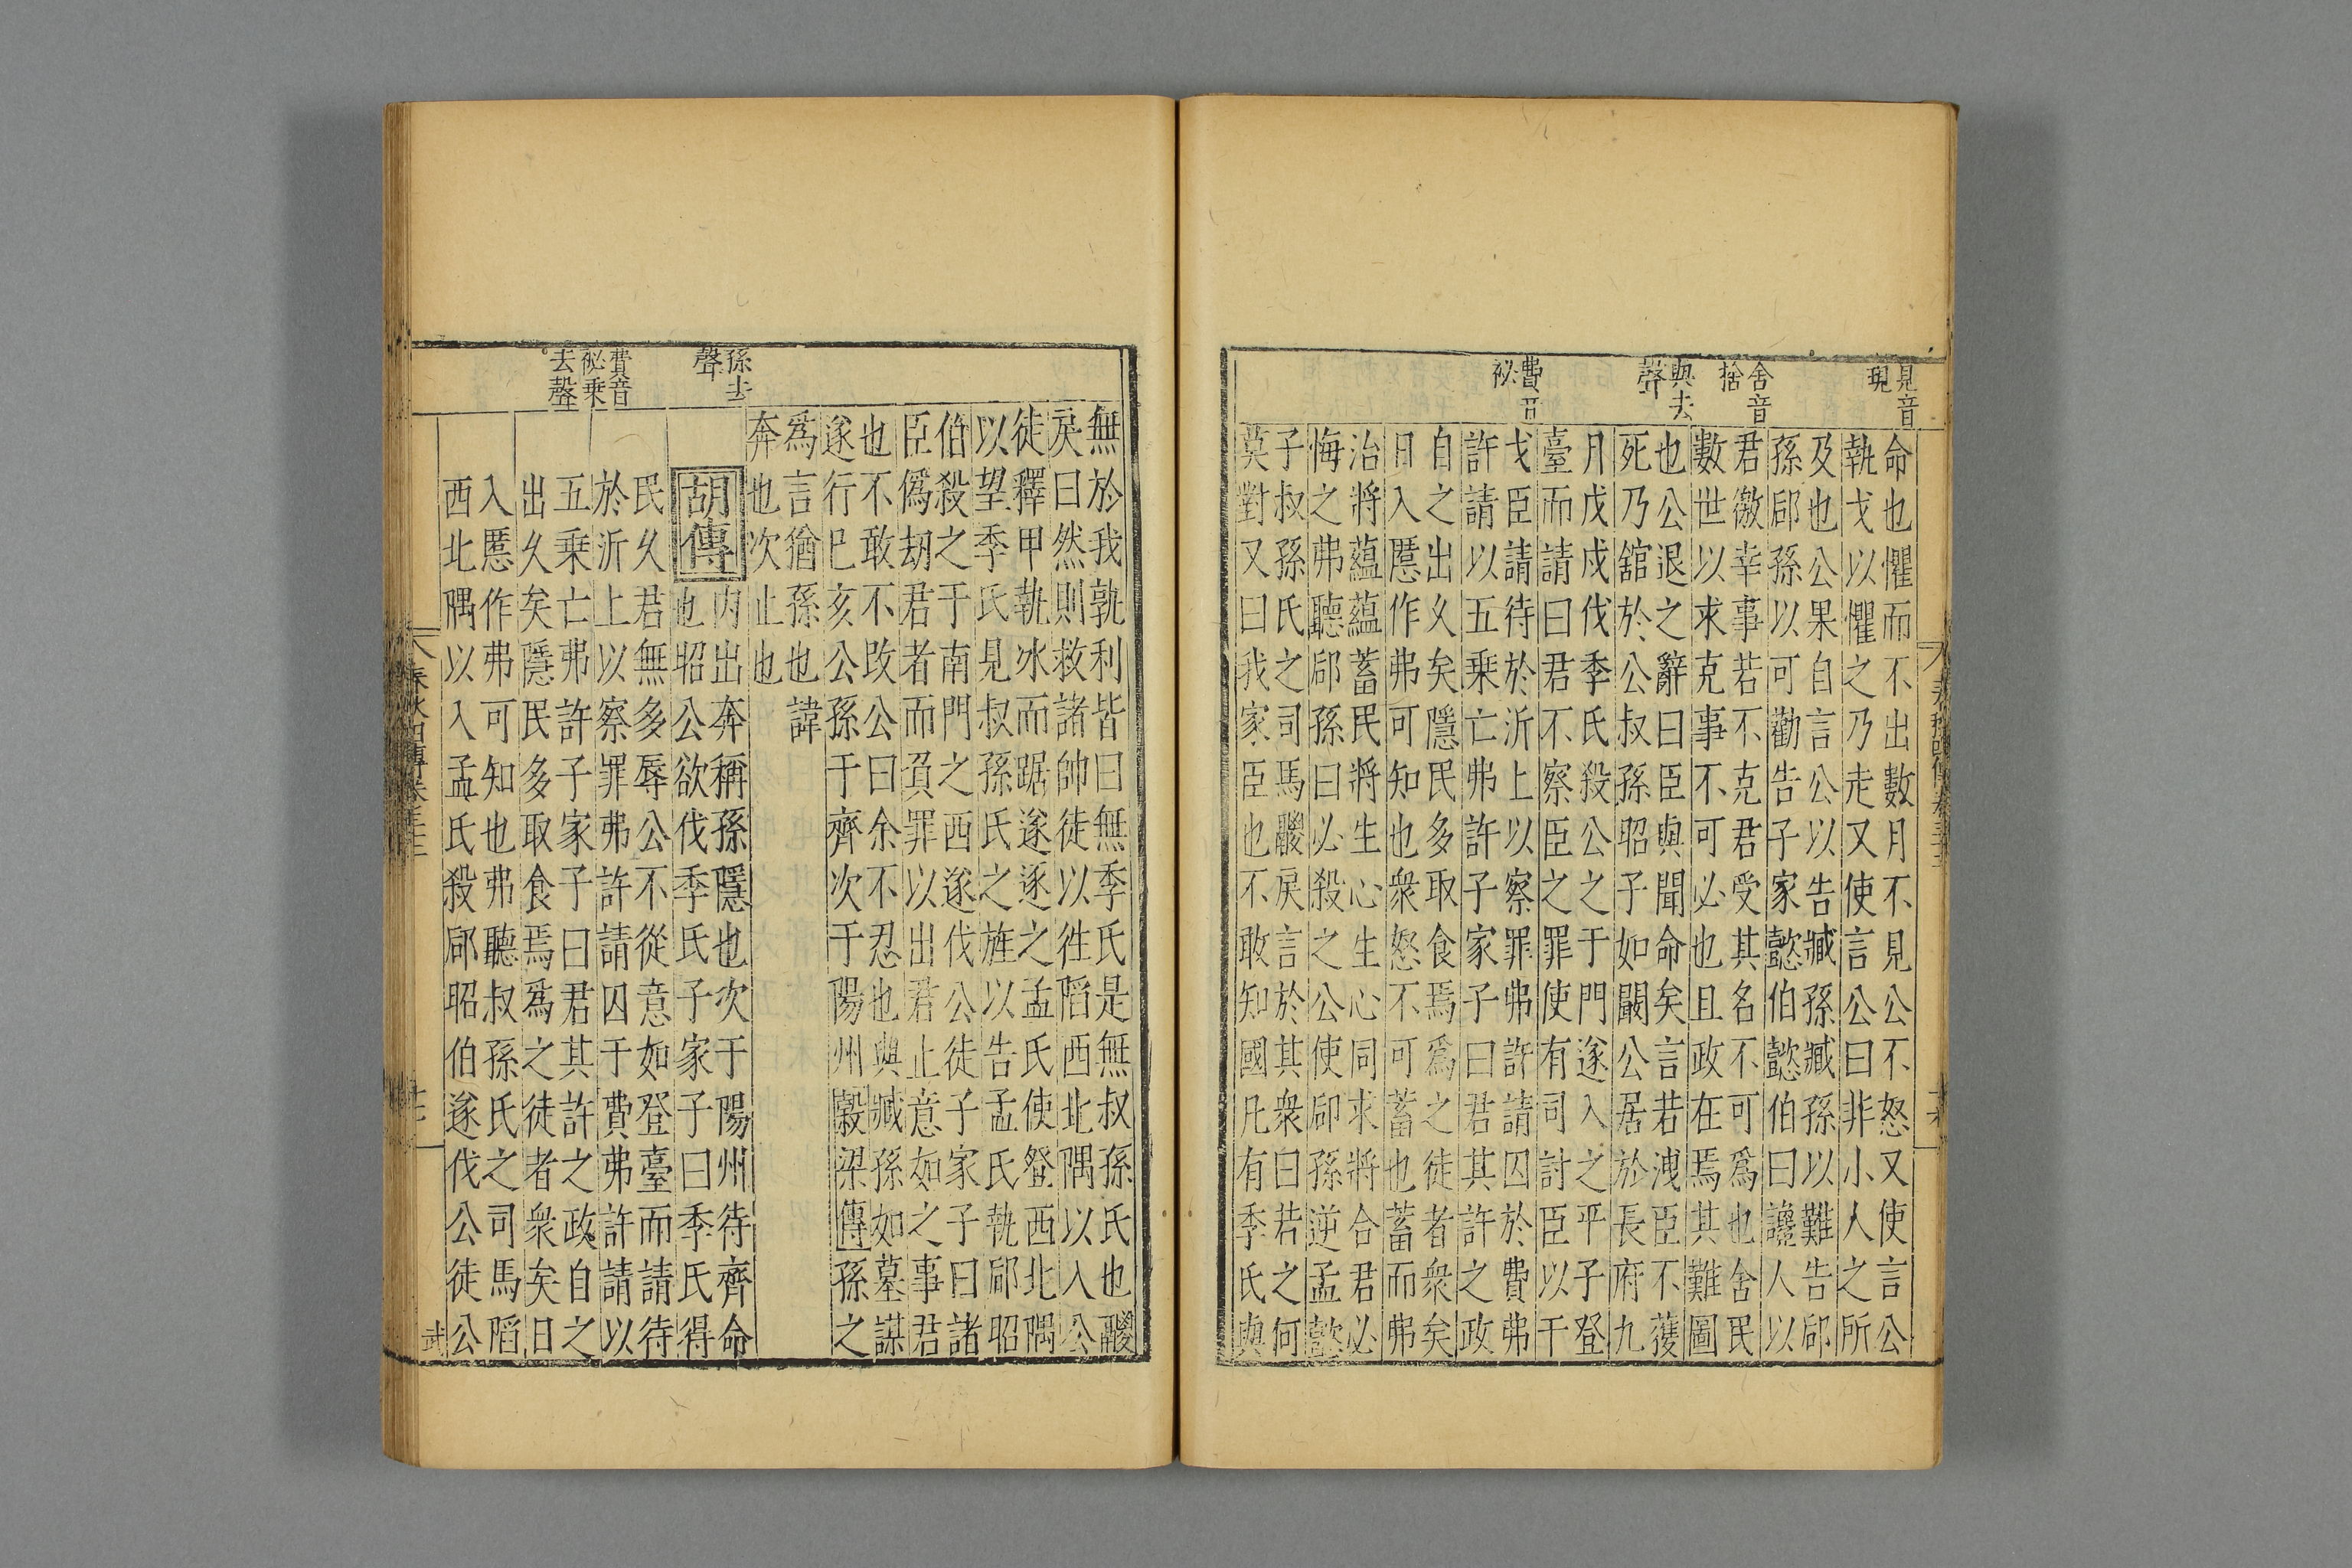 見音
現
舍音
捨
與去
聲
費音
祕
命也懼而不出數月不見公不怒又使言公
執戈以懼之乃走又使言公曰非小人之所
及也公果自言公以告臧孫臧孫以難告郈
孫郈孫以可勸告子家懿伯懿伯曰讒人以
君徼幸事若不克君受其名不可爲也舍民
數世以求克事不可必也且政在焉其難圖
也公退之辭曰臣與聞命矣言若洩臣不獲
死乃舘於公叔孫昭子如闞公居於長府九
月戊戌伐季氏殺公之于門遂入之平子登
臺而請曰君不察臣之罪使有司討臣以干
戈臣請待於沂上以察罪弗許請囚於費弗
許請以五乗亡弗許子家子曰君其許之政
自之出久矣隱民多取食焉爲之徒者衆矣
日入慝作弗可知也衆怒不可蓄也蓄而弗
治將蘊蘊蓄民將生心生心同求將合君必
悔之弗聽郈孫曰必殺之公使郈孫逆孟懿
子叔孫氏之司馬鬷戾言於其衆曰若之何
莫對又曰我家臣也不敢知國凡有季氏與
孫去
聲
費音
祕乗
去聲
無於我孰利皆曰無季氏是無叔孫氏也鬷
戾曰然則救諸帥徒以徃陷西北隅以入公
徒釋甲執冰而踞遂逐之孟氏使登西北隅
以望季氏見叔孫氏之旌以告孟氏執郈昭
伯殺之于南門之西遂伐公徒子家子曰諸
臣僞劫君者而負罪以出君止意如之事君
也不敢不改公曰余不忍也與臧孫如墓謀
遂行巳亥公孫于齊次于陽州穀梁傳孫之
爲言猶孫也諱
奔也次止也
胡傳
内出奔稱孫隱也次于陽州待齊命
也昭公欲伐季氏子家子曰季氏得
民久君無多辱公不從意如登臺而請待
於沂上以察罪弗許請囚于費弗許請以
五乗亡弗許子家子曰君其許之政自之
出久矣隱民多取食焉爲之徒者衆矣日
入慝作弗可知也弗聽叔孫氏之司馬陷
西北隅以入孟氏殺郈昭伯遂伐公徒公